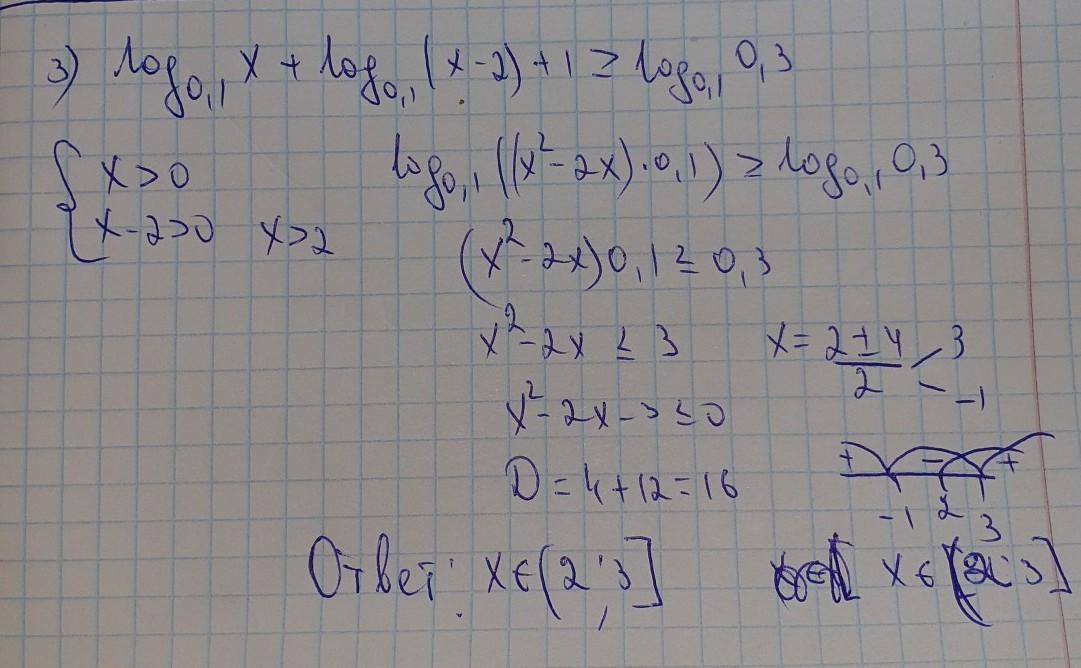 3) log₀,₁ x + log₀,₁ (x-2) + 1 ≥ log₀,₁ 0,3
{ x > 0
x-2>0 x>2
log₀,₁ ((x²-2x)·0,1) ≥ log₀,₁ 0,3
(x²-2x)0,1 ≤ 0,3
x²-2x ≤ 3
x²-2x-3 ≤ 0
D = 4+12=16
x = (2±4)/2 3 -1
+ - +
-1 2 3
x ∈ (2;3]
Ответ: x∈(2;3]